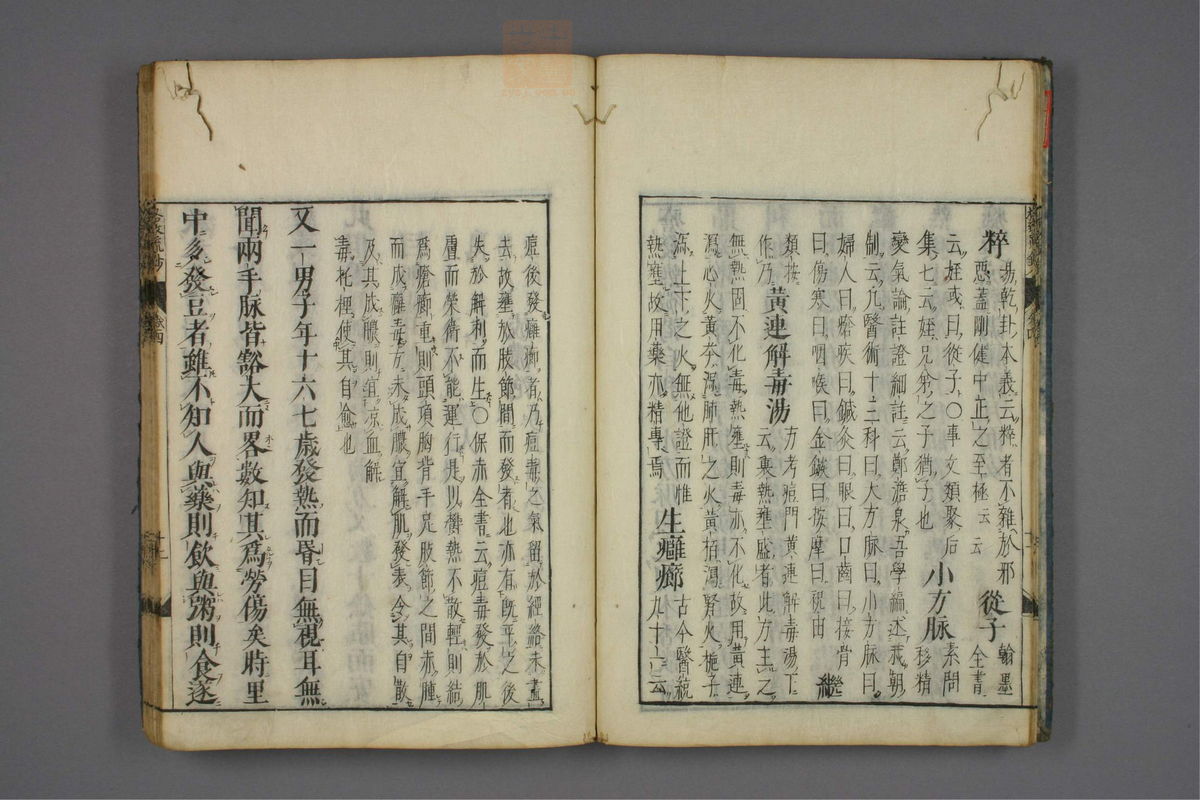 粹 易乾卦本義云粹者不雜於邪
惡蓋剛健中正之至極云云 從子 翰墨全書
云姪或曰從子○事文類聚后
集七云姪兄弟之子猶子也 小方脉 素問移精
變氣論註證細註云鄭澹泉吾學編述我朝
制云凡醫術十三科曰大方脉曰小方脉曰
婦人曰瘡疾曰鍼灸曰眼曰口齒曰接骨
曰傷寒曰咽喉曰金鏃曰按摩曰祝由 繼
類按
作乃 黃連解毒湯 方考痘門黃連解毒湯下
云裏熱壅盛者此方主之
無熱固不化毒熱壅則毒亦不化故用黃連
瀉心火黃芩瀉肺肝之火黃栢瀉腎火梔子
瀉上下之火無他證而惟
熱壅故用藥亦精專焉 生癰癤 古今醫統
九十一云
痘後發癰癤者乃痘毒之氣留於經絡未盡
去故壅於肢節間而發者也亦有既平之後
失於解利而生○保赤全書云痘毒發於肌
膚而榮衛不能運行是以欝熱不散輕則結
爲瘡癤重則頭項胸背手足肢節之間赤腫
而成癰毒方未成膿宜解肌發表令其自散
及其成膿則宜凉血解
毒托裡使其自愈也
又一男子年十六七歲發熱而昬目無視耳無
聞兩手脉皆豁大而畧數知其爲勞傷矣時里
中多發豆者雖不知人與藥則飲與粥則食遂